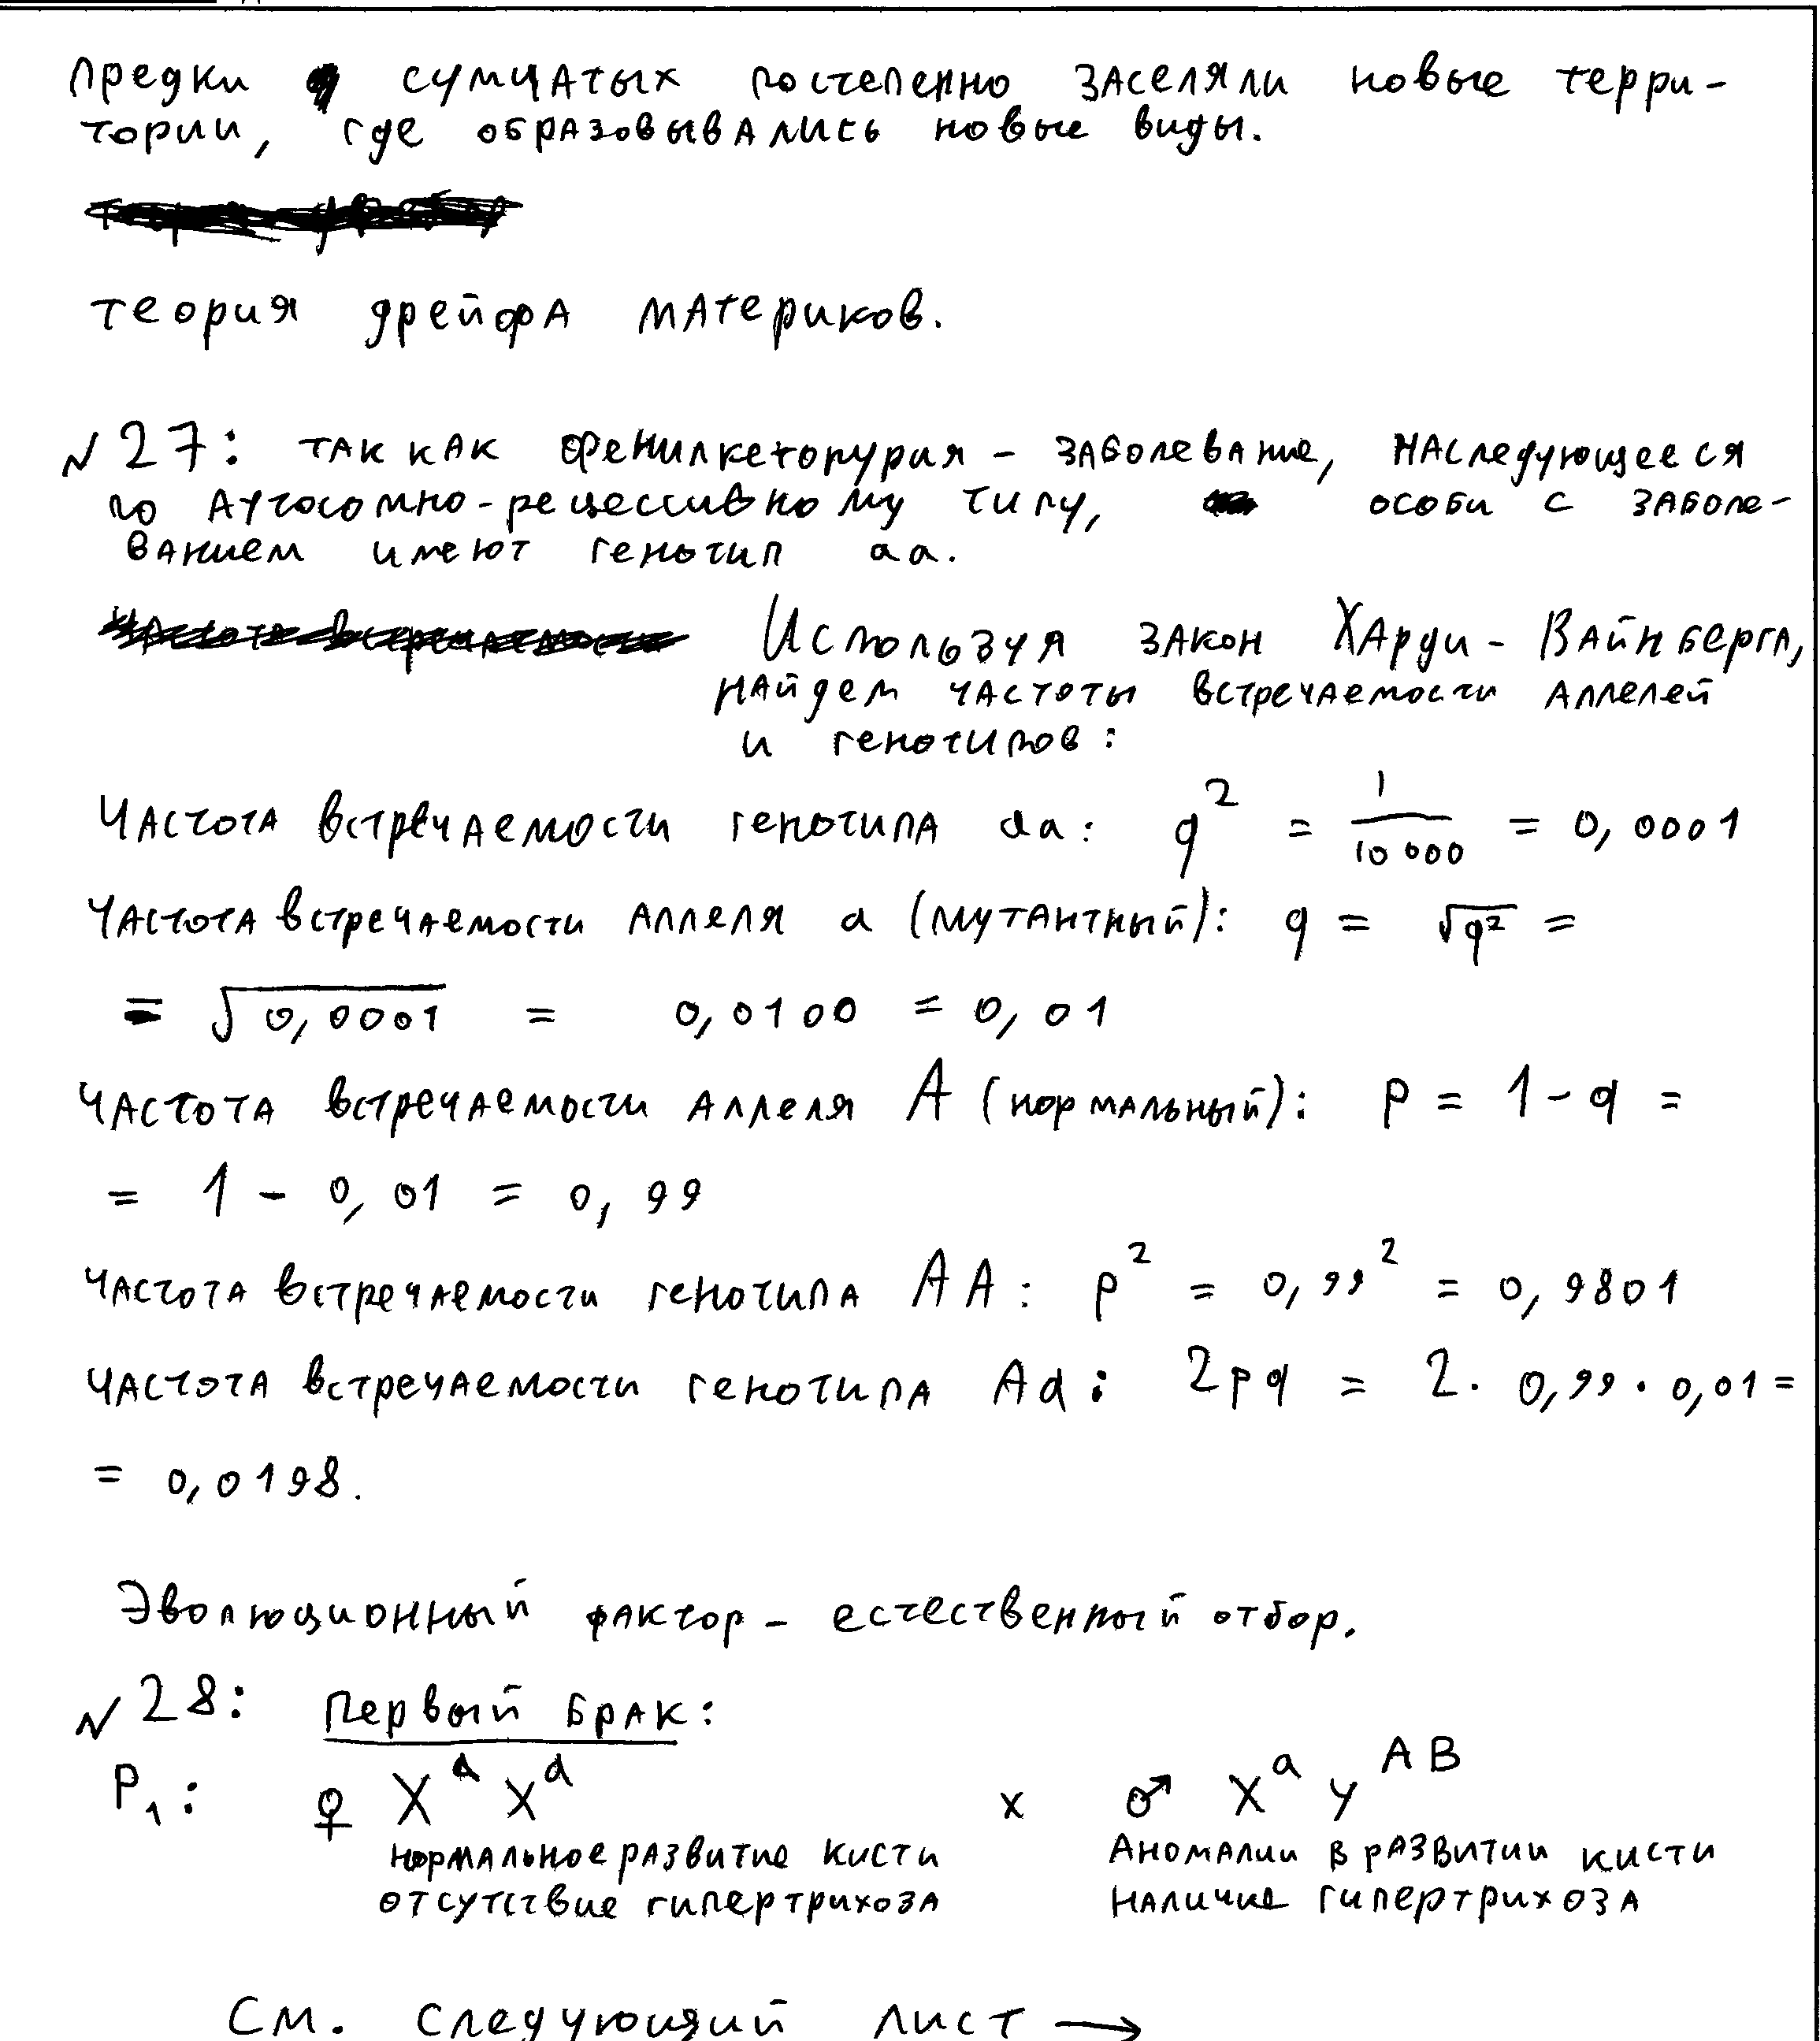 предки сумчатых постепенно заселяли новые терри-
тории, где образовывались новые виды.
теория дрейфа материков.
№27: так как фенилкетонурия - заболевание, наследующееся
по аутосомно-рецессивному типу, особи с заболе-
ванием имеют генотип aa.
Используя закон Харди - Вайнберга,
найдем частоты встречаемости аллелей
и генотипов:
Частота встречаемости генотипа aa: q² = 1/10 000 = 0,0001
Частота встречаемости аллеля a (мутантный): q = √q² =
= √0,0001 = 0,0100 = 0,01
Частота встречаемости аллеля A (нормальный): p = 1 - q =
= 1 - 0,01 = 0,99
Частота встречаемости генотипа AA: p² = 0,99² = 0,9801
Частота встречаемости генотипа Aa: 2pq = 2 · 0,99 · 0,01 =
= 0,0198.
Эволюционный фактор - естественный отбор.
№28: Первый брак:
P₁: ♀ XᵃXᵃ x ♂ XᵃYᴬᴮ
нормальное развитие кисти Аномалии в развитии кисти
отсутствие гипертрихоза наличие гипертрихоза
См. следующий лист →